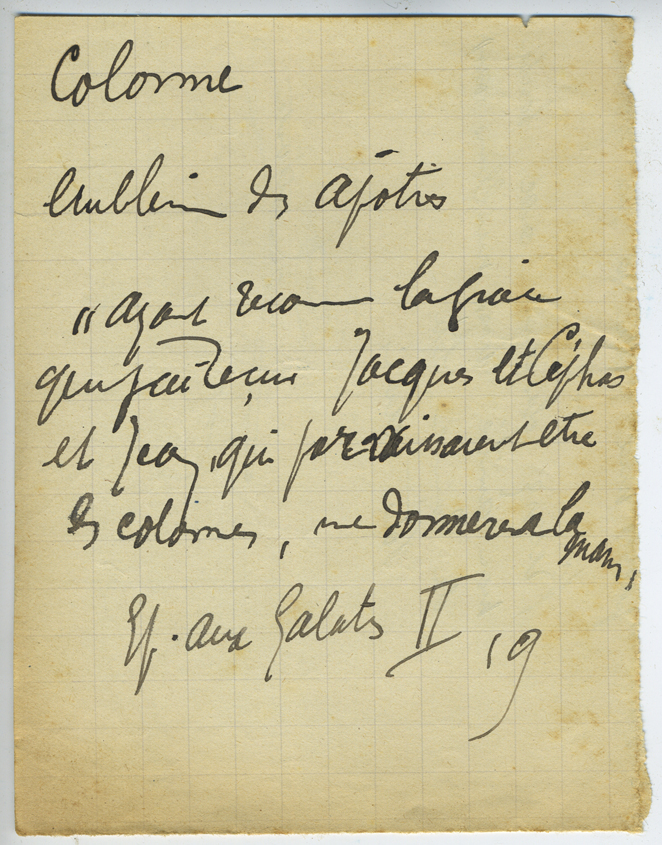 Colonne
Emblème des apôtres
"ayant reconnu la grâce
que j'ai reçue Jacques et Céphas
et Jean, qui paraissaient être
les colonnes, me donnèrent la
main,
Ep. aux Galates II, 9